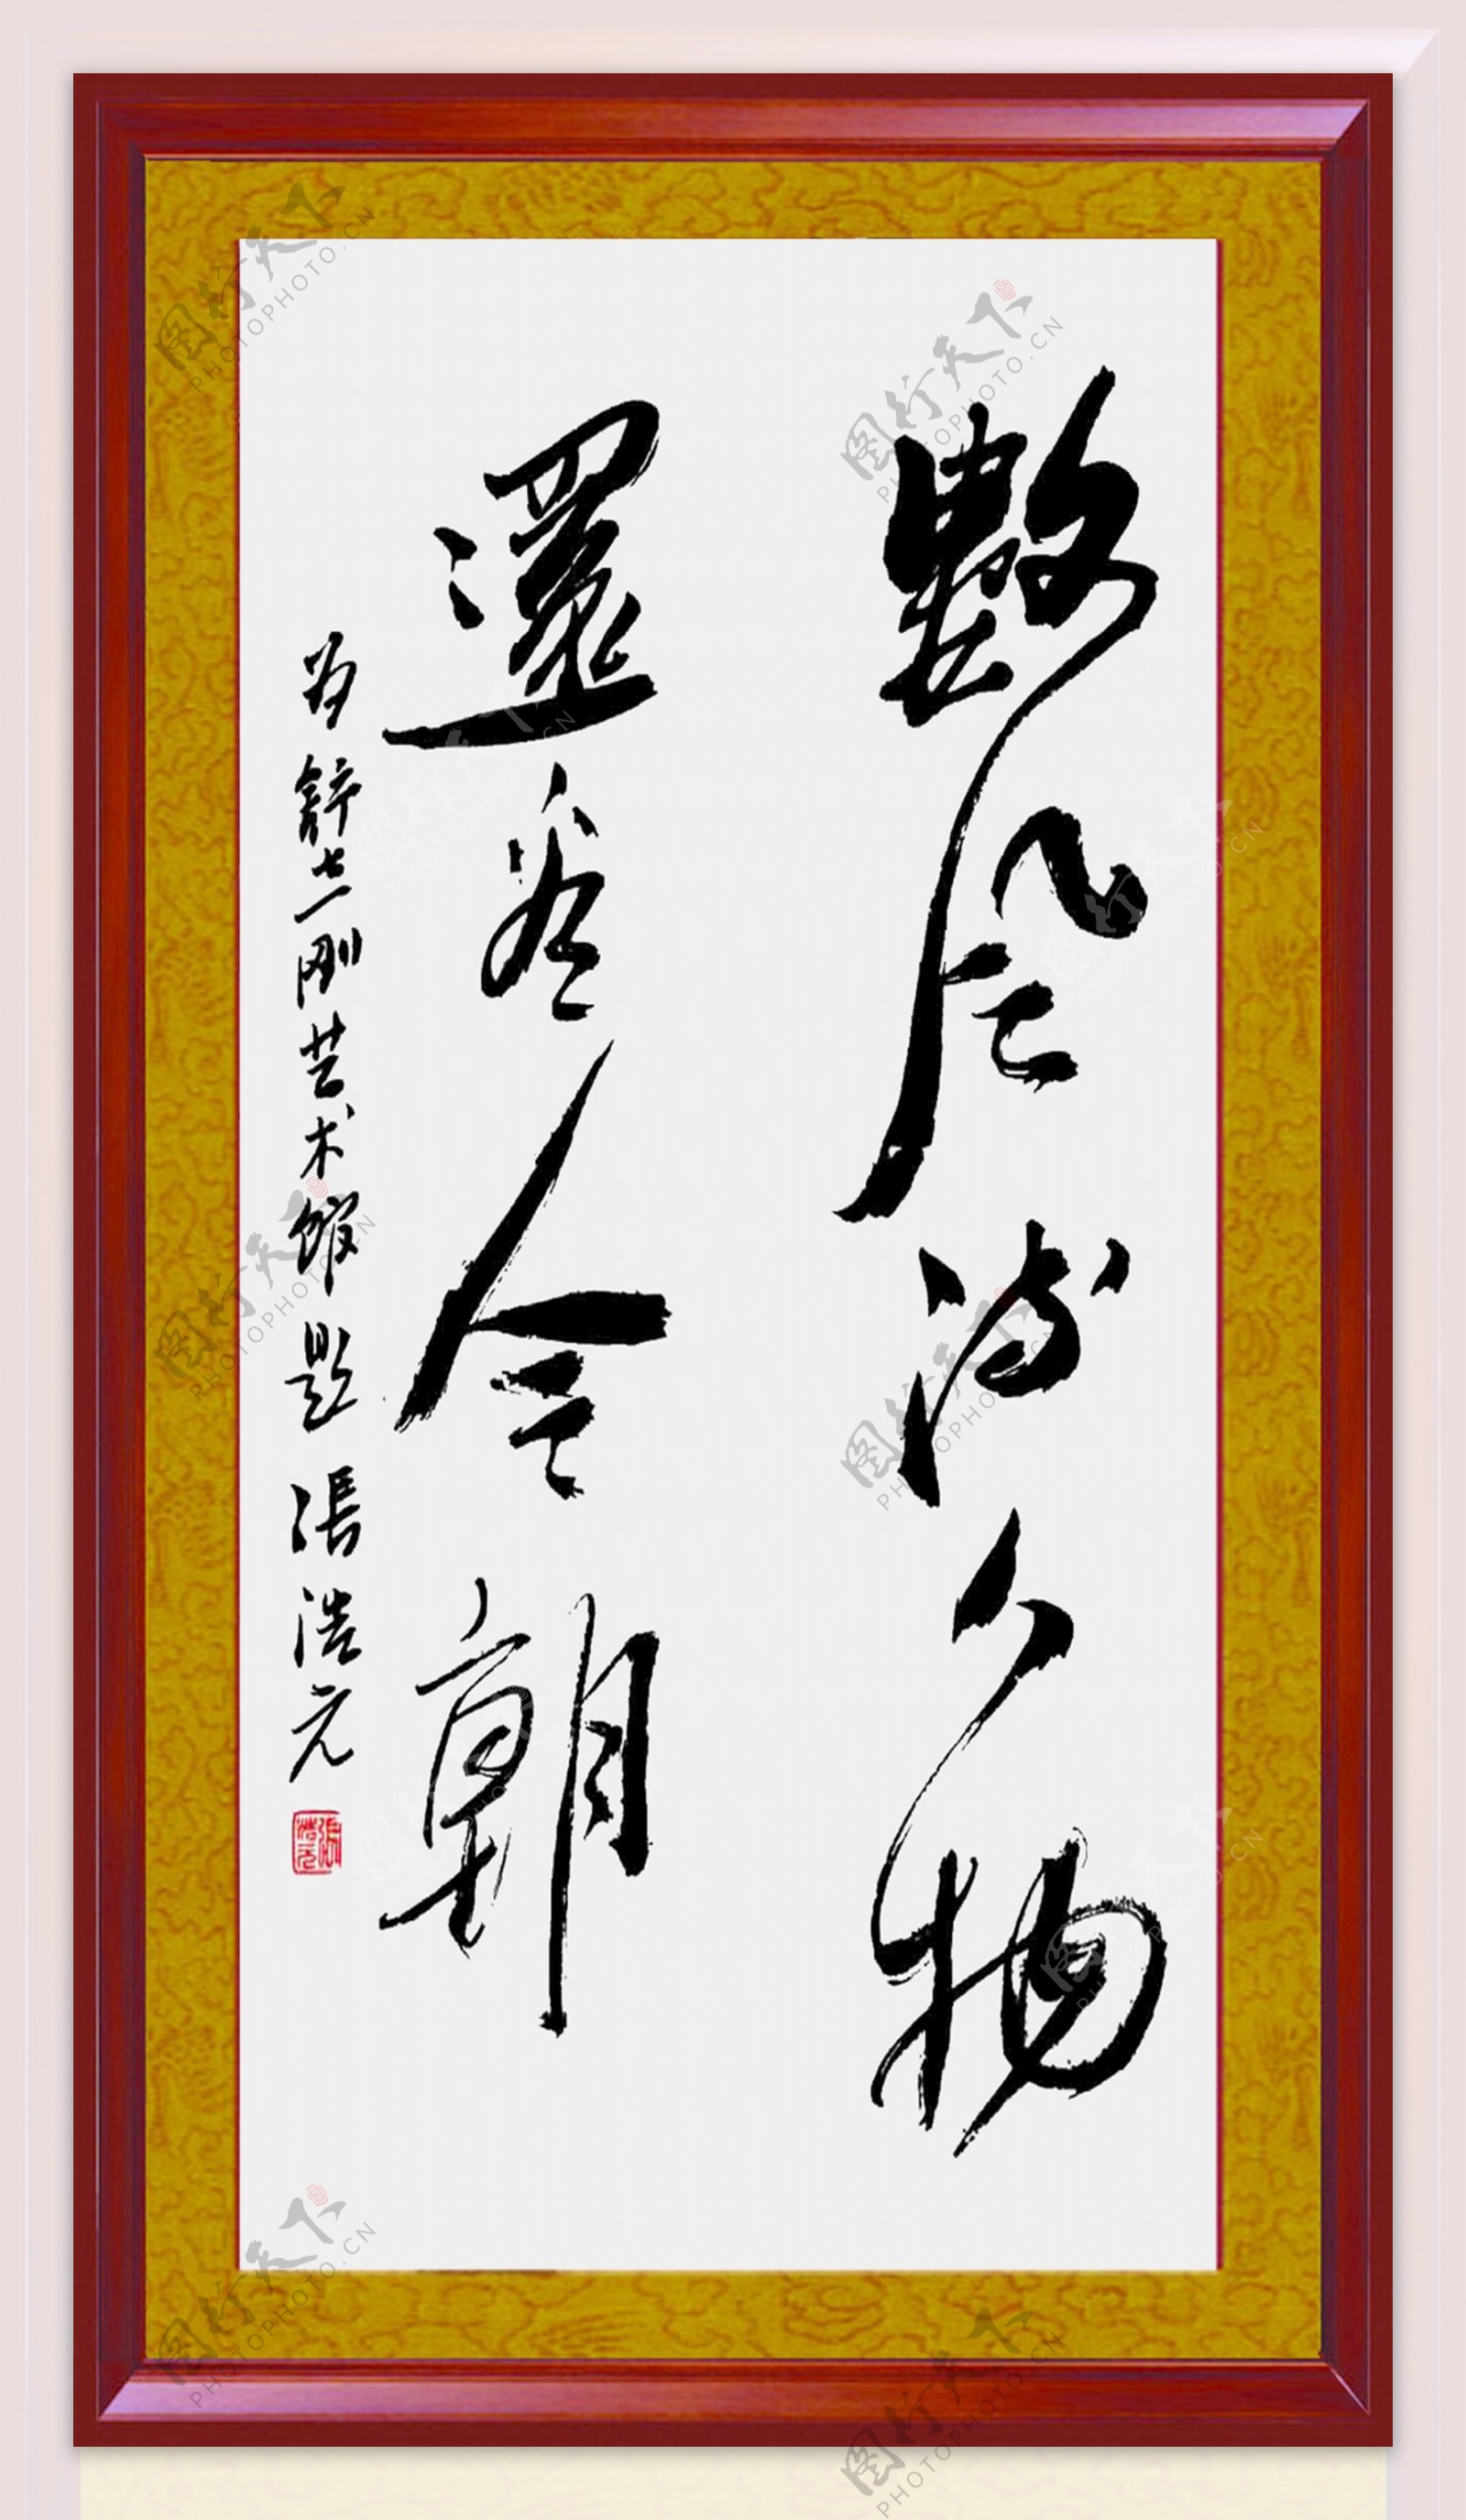 數風流人物
還看今朝
为舒刚艺术馆题 張浩元
張浩元
图行天下 PHOTOPHOTO.CN